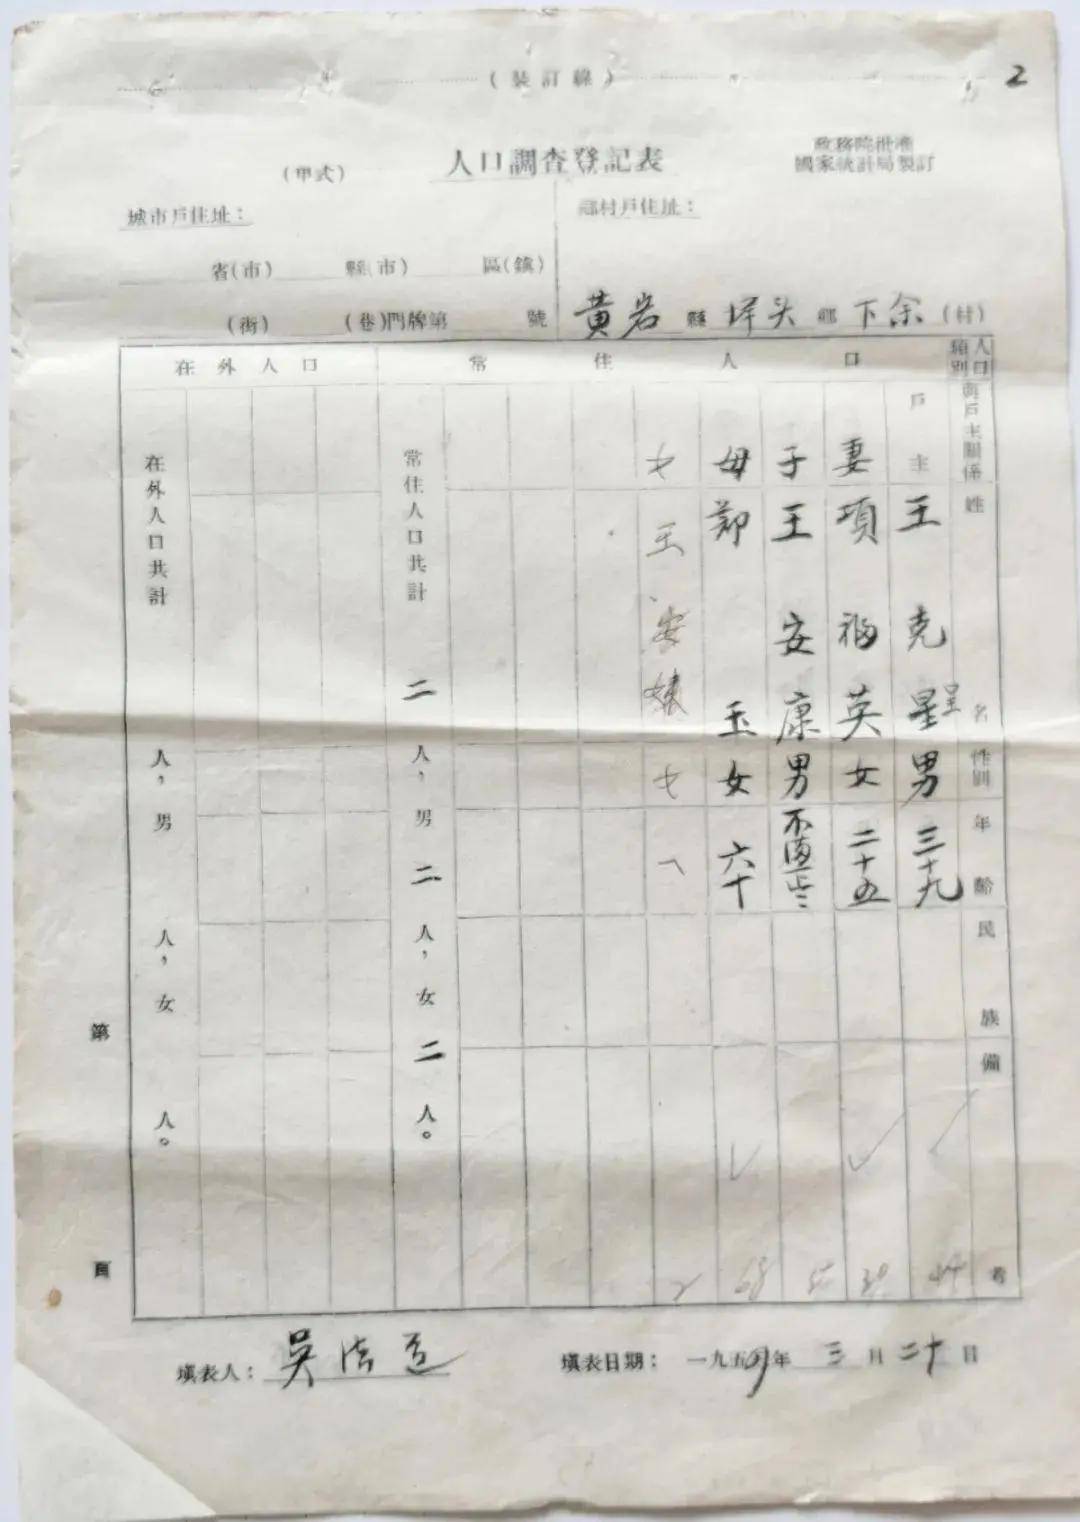 (裝訂綫)
2
(甲式)
人口調查登記表
政務院批准
國家統計局製訂
城市戶住址:
省(市) 縣(市) 區(鎮)
(街) (巷)門牌第 號
鄉村戶住址:
黃岩縣 坪头鄉 下余(村)
人口類別
常住人口
在外人口
與戶主關係
姓名
性別
年齡
民族
備考
戶主 王克星 呈 男 三十九
妻 項福英 女 二十五
子 王安康 男
母 鄭玉 女 六十
女 王安 女
常住人口共計 二人,男二人,女二人。
在外人口共計 人,男 人,女 人。
第 頁
填表人: 吳
填表日期: 一九五 年 三月二十日